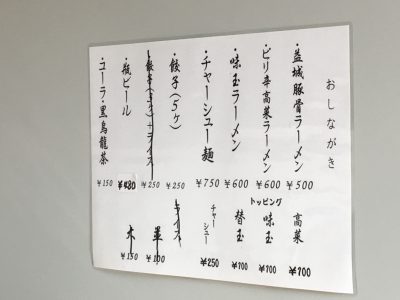 おしながき
・益城豚骨ラーメン ¥500
・ピリ辛高菜ラーメン ¥600
・味玉ラーメン ¥600
・チャーシュー麺 ¥750
・餃子(5ヶ) ¥250
・餃子(5ヶ)+ライス ¥250
・瓶ビール
・コーラ・黒烏龍茶 ¥150
トッピング
高菜 ¥100
味玉 ¥100
替玉 ¥100
チャーシュー ¥250
ライス
¥100
大 ¥150